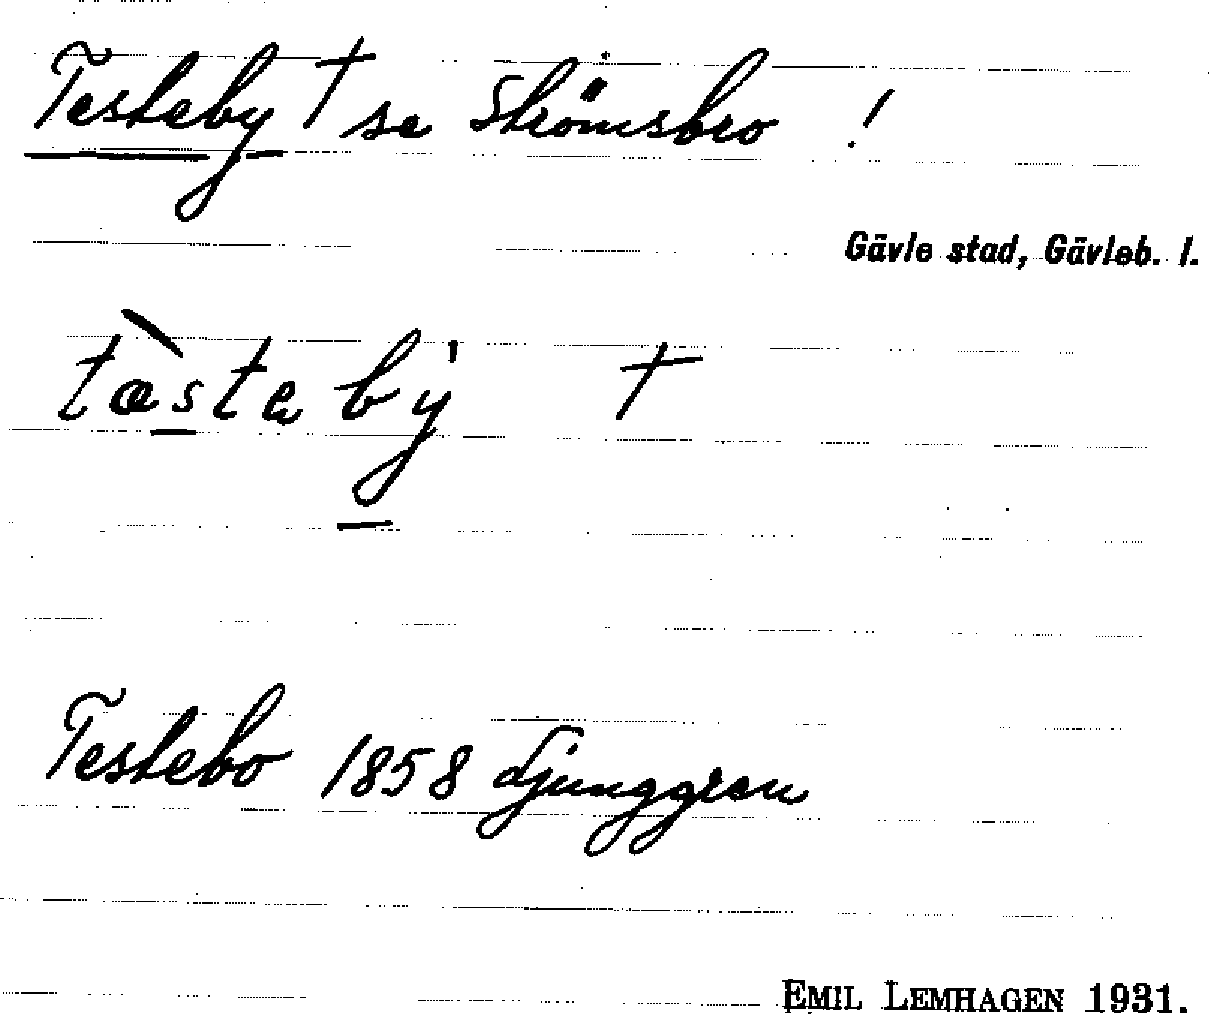 Testeby † se Strömsbro !
Gävle stad, Gävleb. l.
tæ̀steby̍ †
Testebo 1858 Ljunggren
EMIL LEMHAGEN 1931.